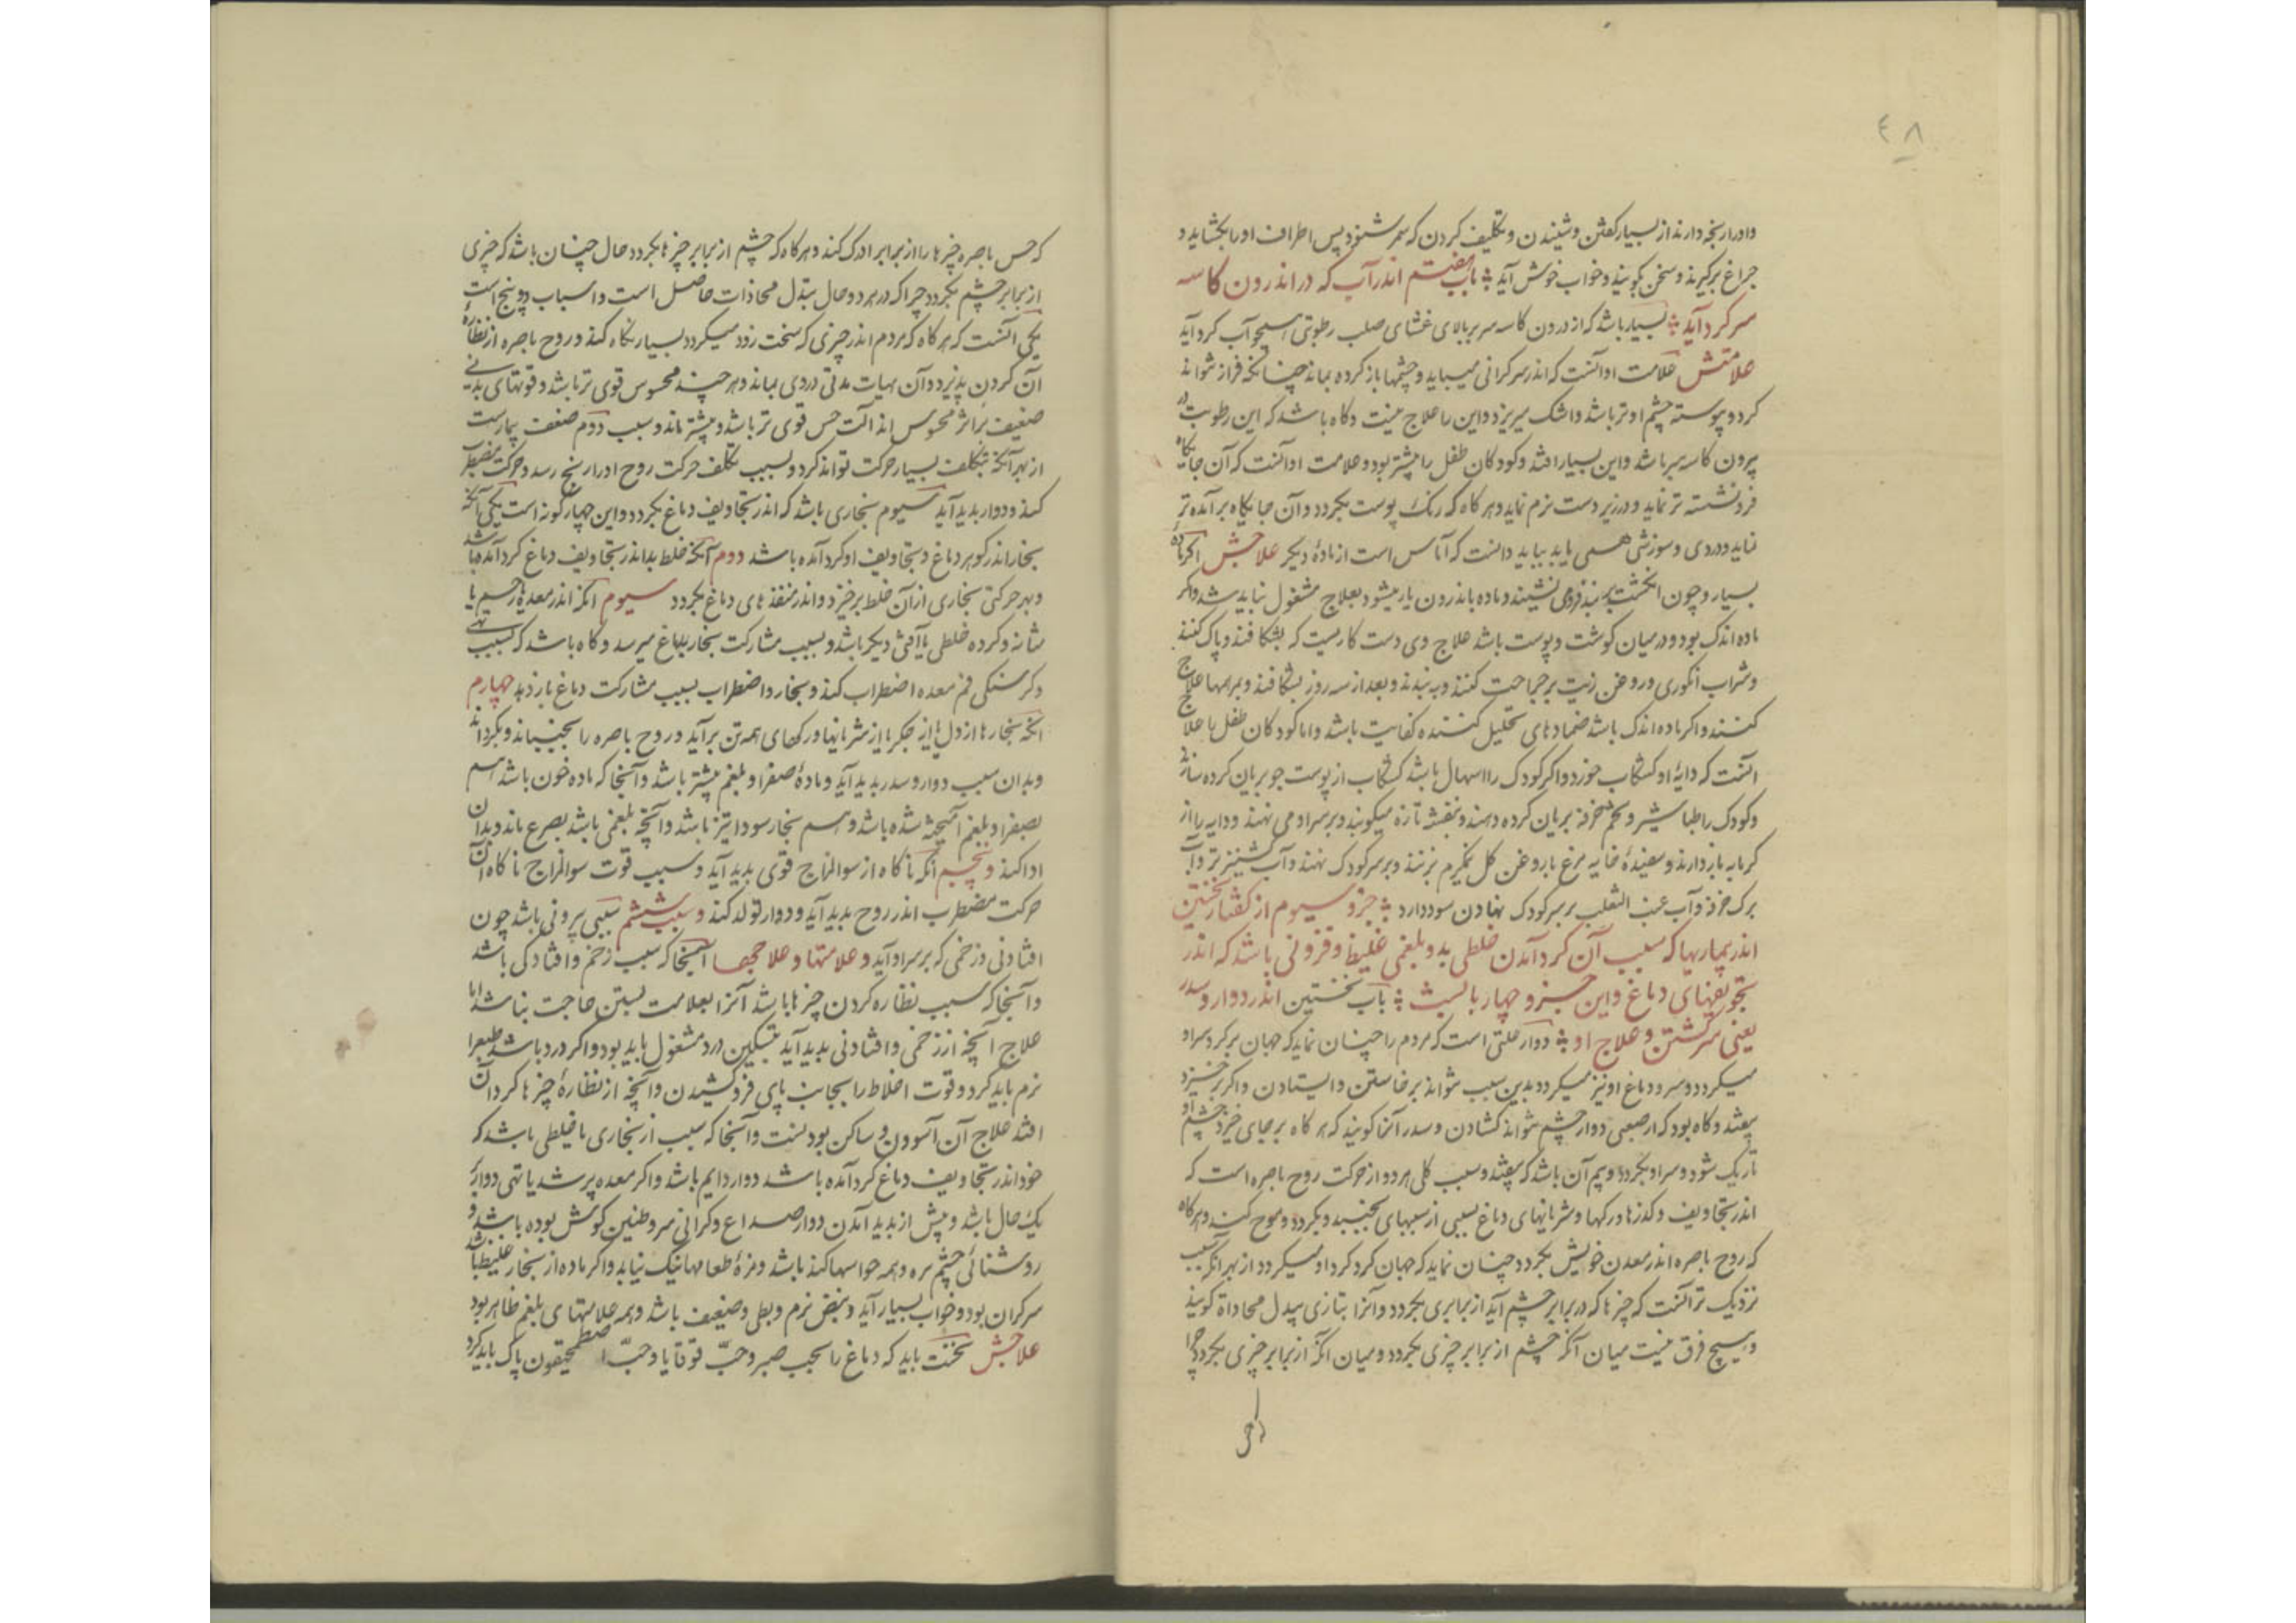 ٤٨
و او را رنجه دارند از بسیار گفتن و شنیدن و تکلیف کردن که سمر شنود پس اطراف او را بگشاید و
چراغ برگیرند و سخن گویند و خواب خوش آید باب هفتم اندر آب که در اندرون کاسه
سر گرد آید بسیار باشد که از درون کاسه سر بر بالای غشای صلب رطوبتی همچو آب گرد آید
علامتش علامت او آنست که اندر سر گرانی میباید و چشمها باز کرده بماند چنانکه فراز نتواند
کرد و پیوسته چشم او تر باشد و اشک میریزد و این را علاج نیست و گاه باشد که این رطوبت
بیرون کاسه سر باشد و این بسیار افتد و کودکان طفل را بیشتر بود و علامت او آنست که آن جایگاه
فرونشسته تر نماید و در زیر دست نرم نماید و هر گاه که رنگ پوست بگردد و آن جایگاه برآمده تر
نماید و دردی و سوزشی همی یابد بباید دانست که آماس است از ماده دیگر علاجش اگر ماده
بسیار و چون انگشت برنهند فرو می نشیند و ماده باندرون باز میشود بعلاج مشغول نباید شد و اگر
ماده اندک بود و در میان گوشت و پوست باشد علاج وی دست کاریست که بشکافند و پاک کنند
و شراب انگوری و روغن زیت بر جراحت کنند و به بندند و بعد از سه روز بشکافند و بمرهمها علاج
کنند و اگر ماده اندک باشد ضمادهای تحلیل کننده کفایت باشد و اما کودکان طفل را علاج
آنست که دایه او کشکاب خورد و اگر کودک را اسهال باشد کشکاب از پوست جو بریان کرده سازند
و کودک را طباشیر و تخم خرفه بریان کرده دهند و بنفشه تازه میکوبند و بر سر او می نهند و دایه را از
گرمابه باز دارند و سفیده خایه مرغ با روغن گل نیم گرم بزنند و بر سر کودک نهند و آب گشنیز تر و آب
برگ خرفه و آب عنب الثعلب بر سر کودک نهادن سود دارد جزو سیوم از گفتار نخستین
اندر بیماریها که سبب آن گرد آمدن خلطی بد و بلغمی غلیظ و فزونی باشد که اندر
تجویفهای دماغ و این جزو چهار بابست باب نخستین اندر دوار و سدر
یعنی سرگشتن و علاج او دوار علتی است که مردم را چنان نماید که جهان بر گرد سر او
میگردد و سر و دماغ او نیز میگردد بدین سبب نتواند برخاستن و ایستادن و اگر برخیزد
بیفتد و گاه بود که از صعبی دوار چشم نتواند گشادن و سدر آنرا گویند که هر گاه بر پای خیزد چشم او
تاریک شود و سر او بگردد و بیم آن باشد که بیفتد و سبب کلی هر دو از حرکت روح باصره است که
اندر تجاویف و گذرها و رگها و شریانهای دماغ بسببی از سببهای بجنبد و بگردد و موج کند و هر گاه
که روح باصره اندر معدن خویش بگردد چنان نماید که جهان گرد گرد او میگردد از بهر آنکه سبب
نزدیک تر آنست که چیزها که در برابر چشم آید از برابری بگردد و آنرا بتازی تبدل محاذاة گویند
و هیچ فرق نیست میان آنکه چشم از برابر چیزی بگردد و میان آنکه از برابر چیزی بگردد چرا
که حس باصره چیزها را از برابر ادراک کند و هر گاه که چشم از برابر چیزها بگردد حال چنان باشد که چیزی
از برابر چشم بگردد چرا که در هر دو حال تبدل محاذات حاصل است و اسباب دو پنج است
یکی آنست که هر گاه که مردم اندر چیزی که سخت زود میگردد بسیار نگاه کند و روح باصره از نظاره
آن گردن پذیرد و آن هیات مدتی در وی بماند و هر چند محسوس قوی تر باشد و قوتهای بدنی
ضعیف تر اثر محسوس اندر آلت حس قوی تر باشد و بیشتر ماند و سبب دوم ضعف بیماریست
از بهر آنکه بتکلف بسیار حرکت تواند کرد و بسبب تکلف حرکت روح او را رنج رسد و حرکت مضطرب
کند و دوار پدید آید سیوم بخاری باشد که اندر تجاویف دماغ بگردد و این چهار گونه است یکی آنکه
بخار اندر گوهر دماغ و تجاویف او گرد آمده باشد دوم آنکه خلط بد اندر تجاویف دماغ گرد آمده باشد
و بهر حرکتی بخاری از آن خلط برخیزد و اندر منفذهای دماغ بگردد سیوم آنکه اندر معده یا رحم یا
مثانه و گرده خلطی یا آفتی دیگر باشد و بسبب مشارکت بخار بدماغ میرسد و گاه باشد که بسبب تهی
و گرسنگی فم معده اضطراب کند و بخار و اضطراب بسبب مشارکت دماغ باز دهد چهارم
آنکه بخارها از دل یا از جگر یا از شریانها و رگهای همه تن برآید و روح باصره را بجنباند و بگرداند
و بدان سبب دوار و سدر پدید آید و ماده صفرا و بلغم بیشتر باشد و آنجا که ماده خون باشد هم
بصفرا و بلغم آمیخته شده باشد و هم بخار سودا نیز باشد و آنچه بلغمی باشد بصرع ماند و بدان
ادا کند و پنجم آنکه ناگاه از سوء المزاج قوی پدید آید و سبب قوت سوء المزاج ناگاه آن
حرکت مضطرب اندر روح پدید آید و دوار تولد کند و سبب ششم سببی بیرونی باشد چون
افتادنی و زخمی که بر سر او آید و علامتها و علاجها آنجا که سبب زخم و افتادگی باشد
و آنجا که سبب نظاره کردن چیزها باشد آنرا بعلامت بستن حاجت نباشد اما
علاج آنچه از زخمی و افتادنی پدید آید بتسکین درد مشغول باید بود و اگر درد باشد طبع را
نرم باید کرد و قوت اخلاط را بجانب پای فرو کشیدن و آنچه از نظاره چیزها گردان
افتد علاج آن آسودن و ساکن بودنست و آنجا که سبب از بخاری یا خلطی باشد که
خود اندر تجاویف دماغ گرد آمده باشد دوار دایم باشد و اگر معده پر شد یا تهی دوار
یک حال باشد و پیش از پدید آمدن دوار صداع و گرانی سر و طنین گوش بوده باشد و
روشنائی چشم تیره و همه حواسها کند باشد و مزه طعامها نیک نیابد و اگر ماده از بخار غلیظ باشد
سر گران بود و خواب بسیار آید و نبض نرم و بطی و ضعیف باشد و همه علامتهای بلغم ظاهر بود
علاجش نخست باید که دماغ را بحب صبر و حب قوقایا و حب اصطمخیقون پاک باید کرد